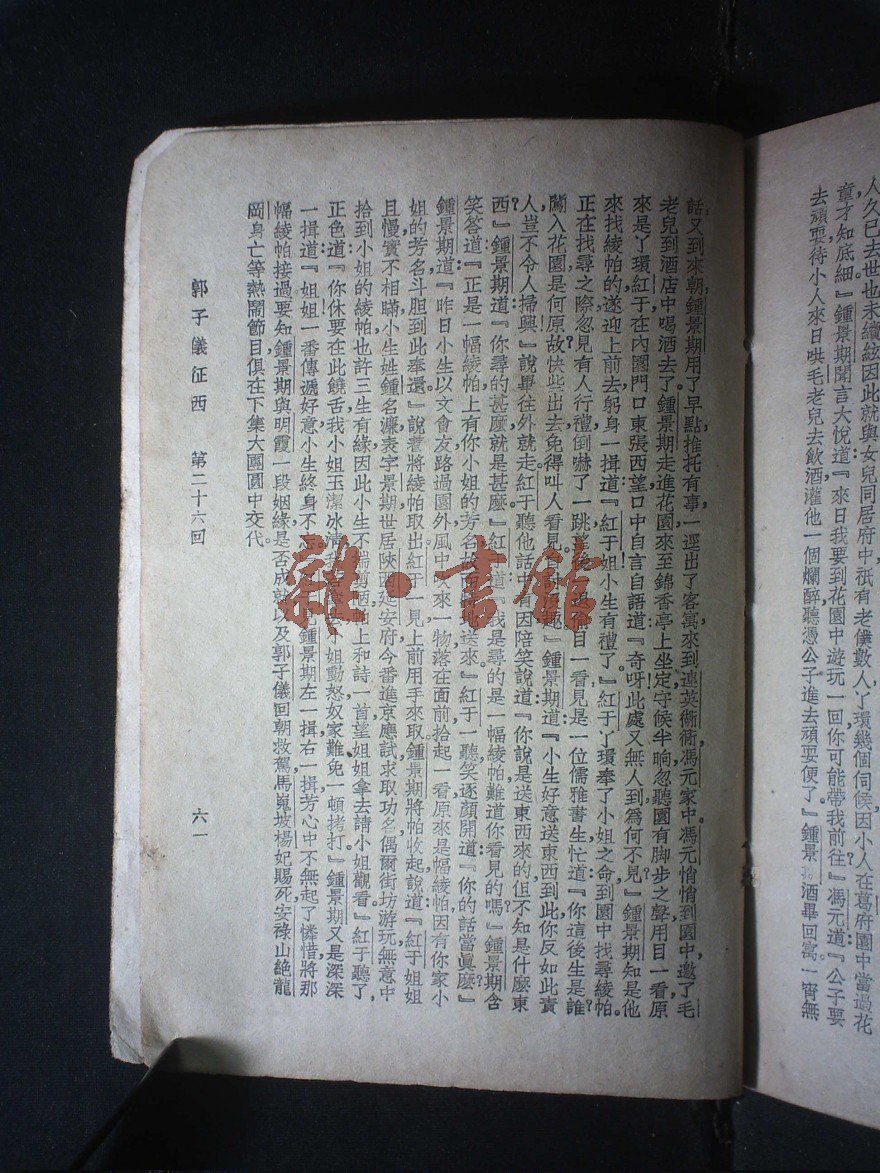 人久已去世也未續絃因此就與女兒同居府中祇有老僕數人丫環幾個伺候因小人在葛府園中當過花
童才知底細』鍾景期聞言大悅道『來日我要到花園中遊玩一回你可能帶我前往』馮元道『公子要
去頑耍待小人來日哄毛老兒去飲酒灌他一個爛醉聽憑公子進去頑耍便了』鍾景 酒畢回寓一宵無
話又到來朝鍾景期用了早點推托有事一逕出了客寓來到連英衚衕馮元家中馮元悄悄到園中邀了毛
老兒到酒店中喝酒去了鍾景期走進花園來至錦香亭上坐定守候半晌忽聽園有脚步之聲用目一看原
來是丫環紅于在內園門口東張西望口中自言自語道『奇呀此處又無人到為何不見』鍾景期知是他
來找綾帕的遂迎上前去躬身一揖道『紅于姐小生有禮了』紅于丫環奉了小姐之命到園中找尋綾帕
正在找尋之際忽見有人行禮倒嚇了一跳 目一看見是一位儒雅書生忙道『你這後生是誰
闖入花園是何原故快些出去免得叫人看見 』鍾景期道『小生好意送東西到此你反如此責
人豈不令人掃興』說畢往外就走紅于聽他話中有因陪笑說道『你說是送東西來的但不知是什麽東
西』鍾景期道『你尋的甚麽就是甚麽』紅 道『我是尋的是一幅綾帕難道你看見的嗎』鍾景期含
笑答道『正是一幅綾帕上有你小姐的芳名 送來』紅于一聽笑逐顏開道『你的話當眞麽』
鍾景期道『昨日小生以文會友路過園外風中 來一物落在面前拾起一看原來是幅綾帕因有你家小
姐的芳名斗胆到此奉還』說着將綾帕取出紅于一見上前用手來取鍾景期將帕收起說道『紅于姐姐
且慢實不相瞞小生姓鍾名濂表字景期世居陝西延安府今番進京應試求取功名偶爾街坊游玩無意中
拾到小姐的綾帕也許三生有緣因此小生不揣 帕上和詩一首望姐姐拿去請小姐觀看』紅于聽了
正色道『你休要在此饒舌我小姐玉潔冰清 小姐動怒奴家難免一頓拷打』鍾景期又是深深
一揖道『姐姐一番傳遞好意小生終身不忘 見鍾景期左一揖右一揖芳心中不無起了憐惜將那
幅綾帕接過要知鍾景期與明霞一段姻緣是否成就以及郭子儀回朝救駕馬嵬坡楊妃賜死安祿山絶龍
岡身亡等熱鬧節目俱在下集大團圓中交代
郭子儀征西 第二十六回 六一
雜·書館